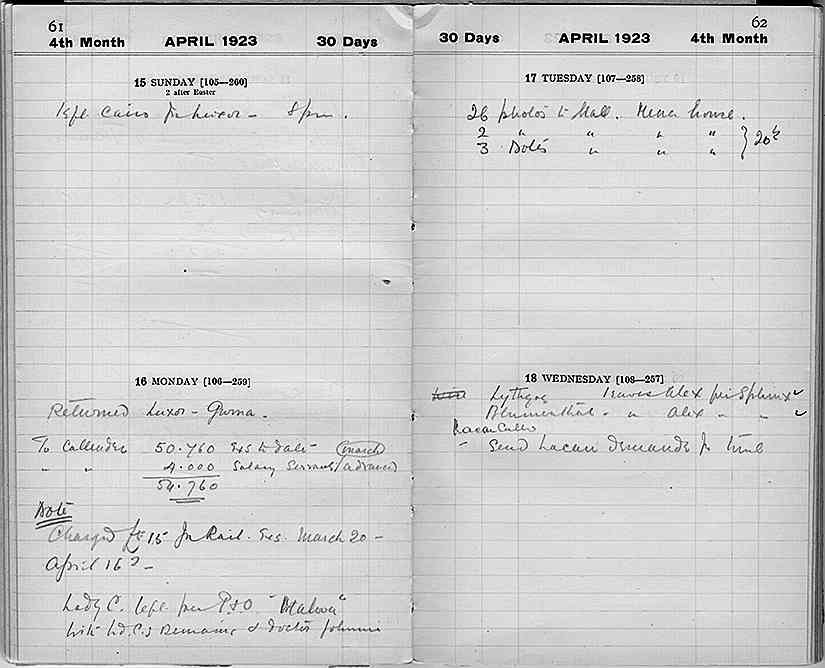 61
4th Month APRIL 1923 30 Days
15 SUNDAY [105—260]
2 after Easter
left Cairo for Luxor — 8 pm.
16 MONDAY [106—259]
Returned Luxor — Gurna.
To Callender 50.760 Exs to date (March)
" " 4.000 Salary Servants/advanced
54.760
Note
Charged for Rail. Exs. March 20 —
April 16
Lady C. left per P&O "Malwa"
with Ld. C.'s Remains & doctor Johnnie
62
30 Days APRIL 1923 4th Month
17 TUESDAY [107—258]
26 photos to Hall. Mena house.
2 " " " "
3 Notes " " " } 20½
18 WEDNESDAY [108—257]
Lythgoe leaves Alex per Sphinx
Blumenthal - " Alex - " - "
Lacau
- Send Lacau demands for tomb